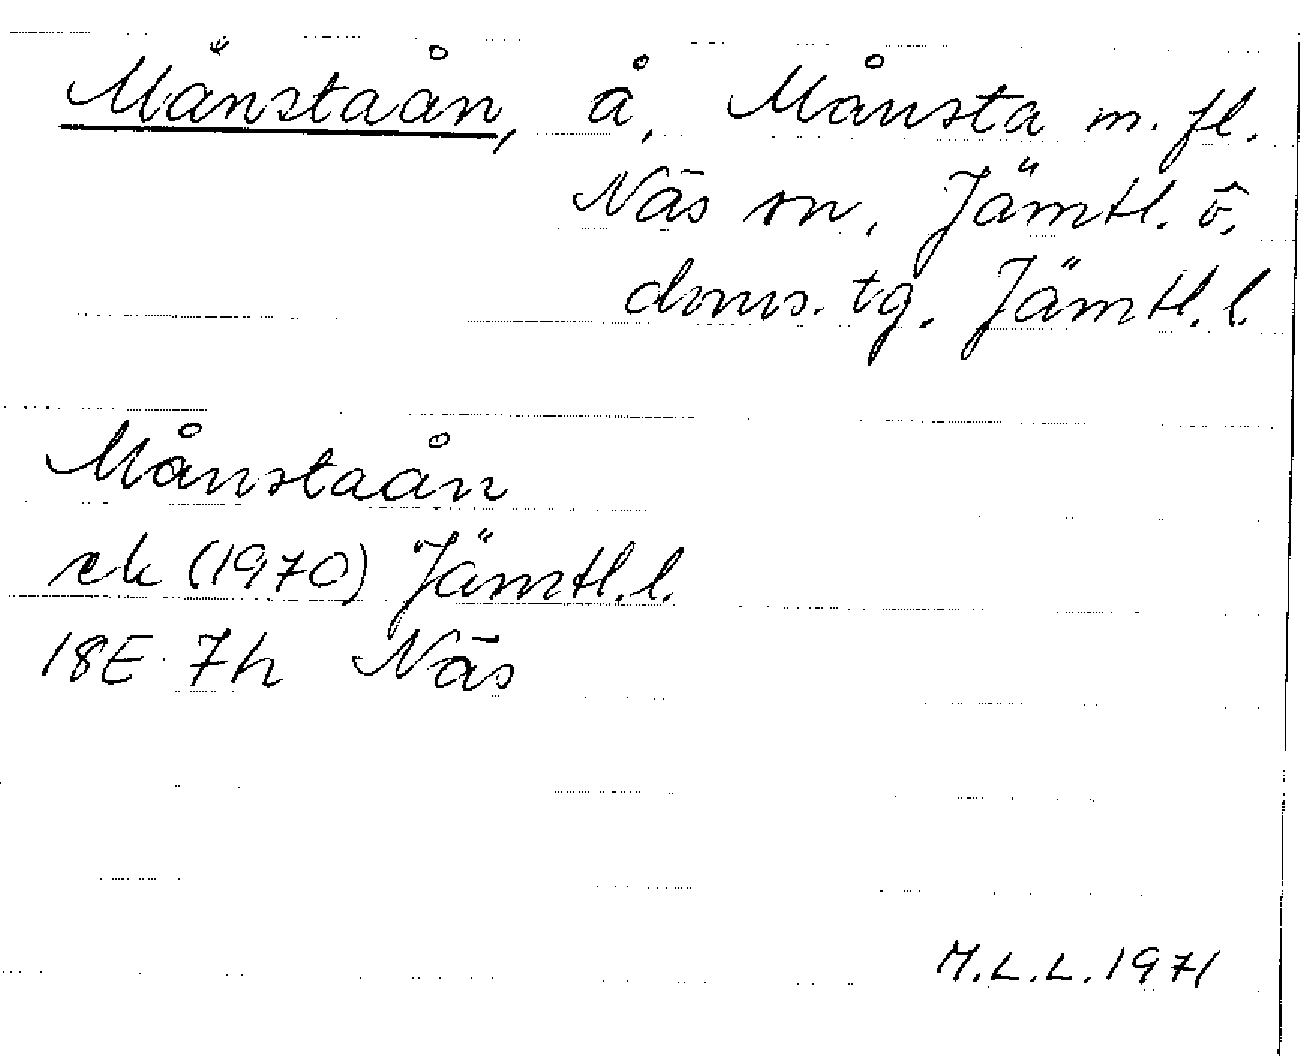 Månstaån, å, Månsta m. fl.
Näs sn, Jämtl. ö.
doms. tg. Jämtl. l.
Månstaån
ek (1970) Jämtl. l.
18E 7h Näs
M.L.L. 1971